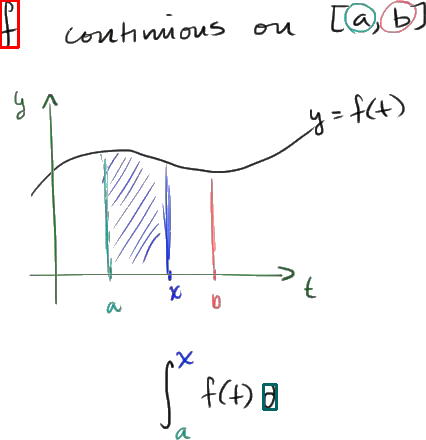 f continuous on [a, b]
y
y = f(t)
a x b t
∫ₐˣ f(t) d